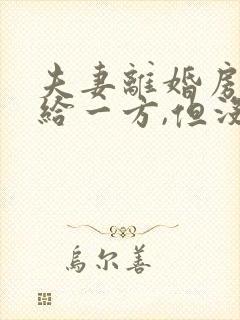 夫妻離婚房
給一方,但沒
烏尔善